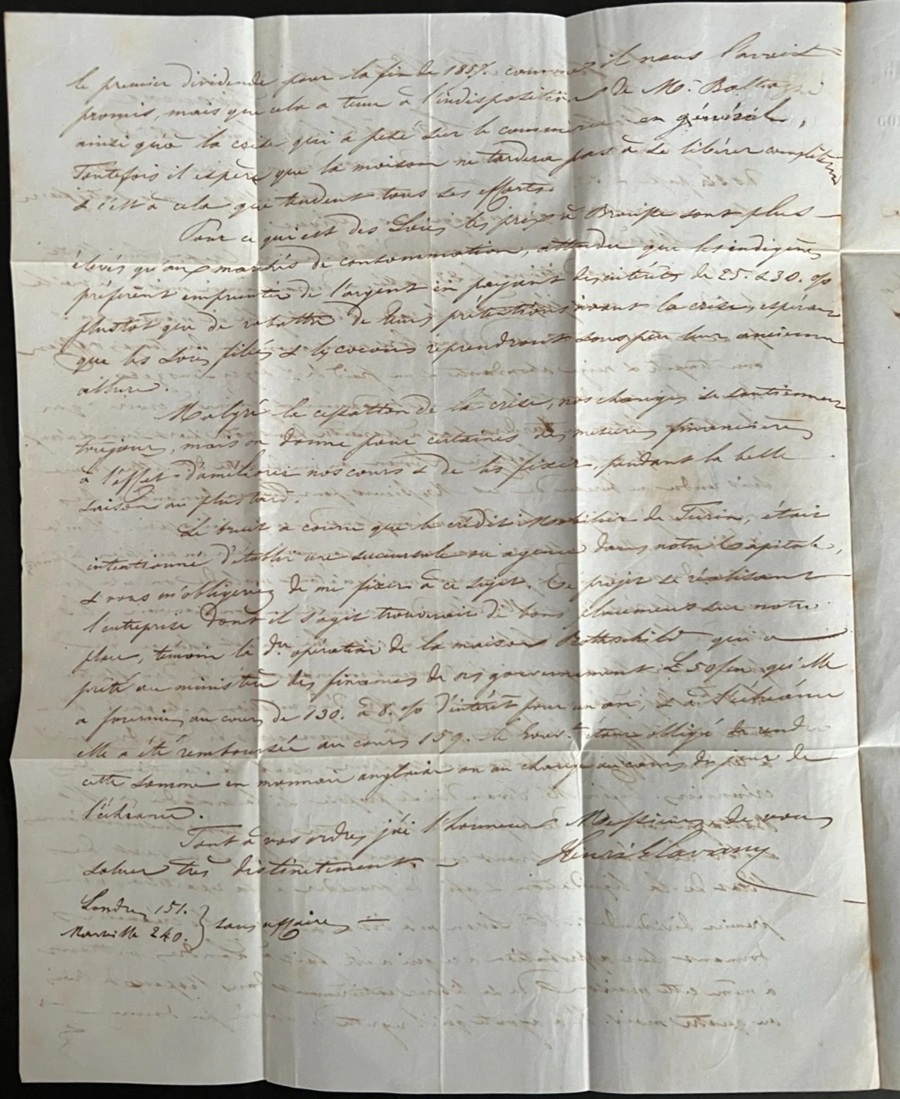 le premier dividende pour la fin de 1857. comme il nous l'avait
promis, mais que cela a tenu à l'indisposition de Mr. Baltazzi
ainsi qu'à la crise qui a pesé sur le commerce en général,
Toutefois il espère que la maison ne tardera pas à se libérer complètem
& c'est à cela que tendent tous ses efforts.
Pour ce qui est des Soies les prix à Brousse sont plus
élevés qu'aux marchés de consommation, attendu que les indigènes
préfèrent emprunter de l'argent en payant des intérêts de 25. à 30. %
plustôt que de rabattre de leurs prétentions avant la crise, espérant
que les Soies filées & les cocons reprendront sous peu leur ancienne
allure.
Malgré la cessation de la crise, nos changes se soutiennent
toujours, mais on donne pour certaines des mesures financières
à l'effet d'améliorer nos cours & de les fixer, pendant la belle
saison au plustard.
Le bruit a couru que le crédit Mobilier de Turin, était
intentionné d'établir une succursale ou agence dans notre Capitale,
& vous m'obligeriez de me fixer à ce sujet. Ce projet se réalisant
l'entreprise dont il s'agit trouverait de bons placements sur notre
place, témoin la dre opération de la maison Rothschild qui a
prêté au ministre des finances de ce gouvernement £ 50/m qu'elle
a fournies au cours de 130. à 8. % d'intérêt pour un an, & à l'échéance
elle a été remboursée au cours 159. le Gouvt. étant obligé de rendre
cette somme en monnaie anglaise ou au change au cours du jour de
l'échéance.
Tout à vos ordres, j'ai l'honneur Messieurs de vous
saluer très distinctement. —
Henri
Londres 151.
Marseille 240. } sans affaires —